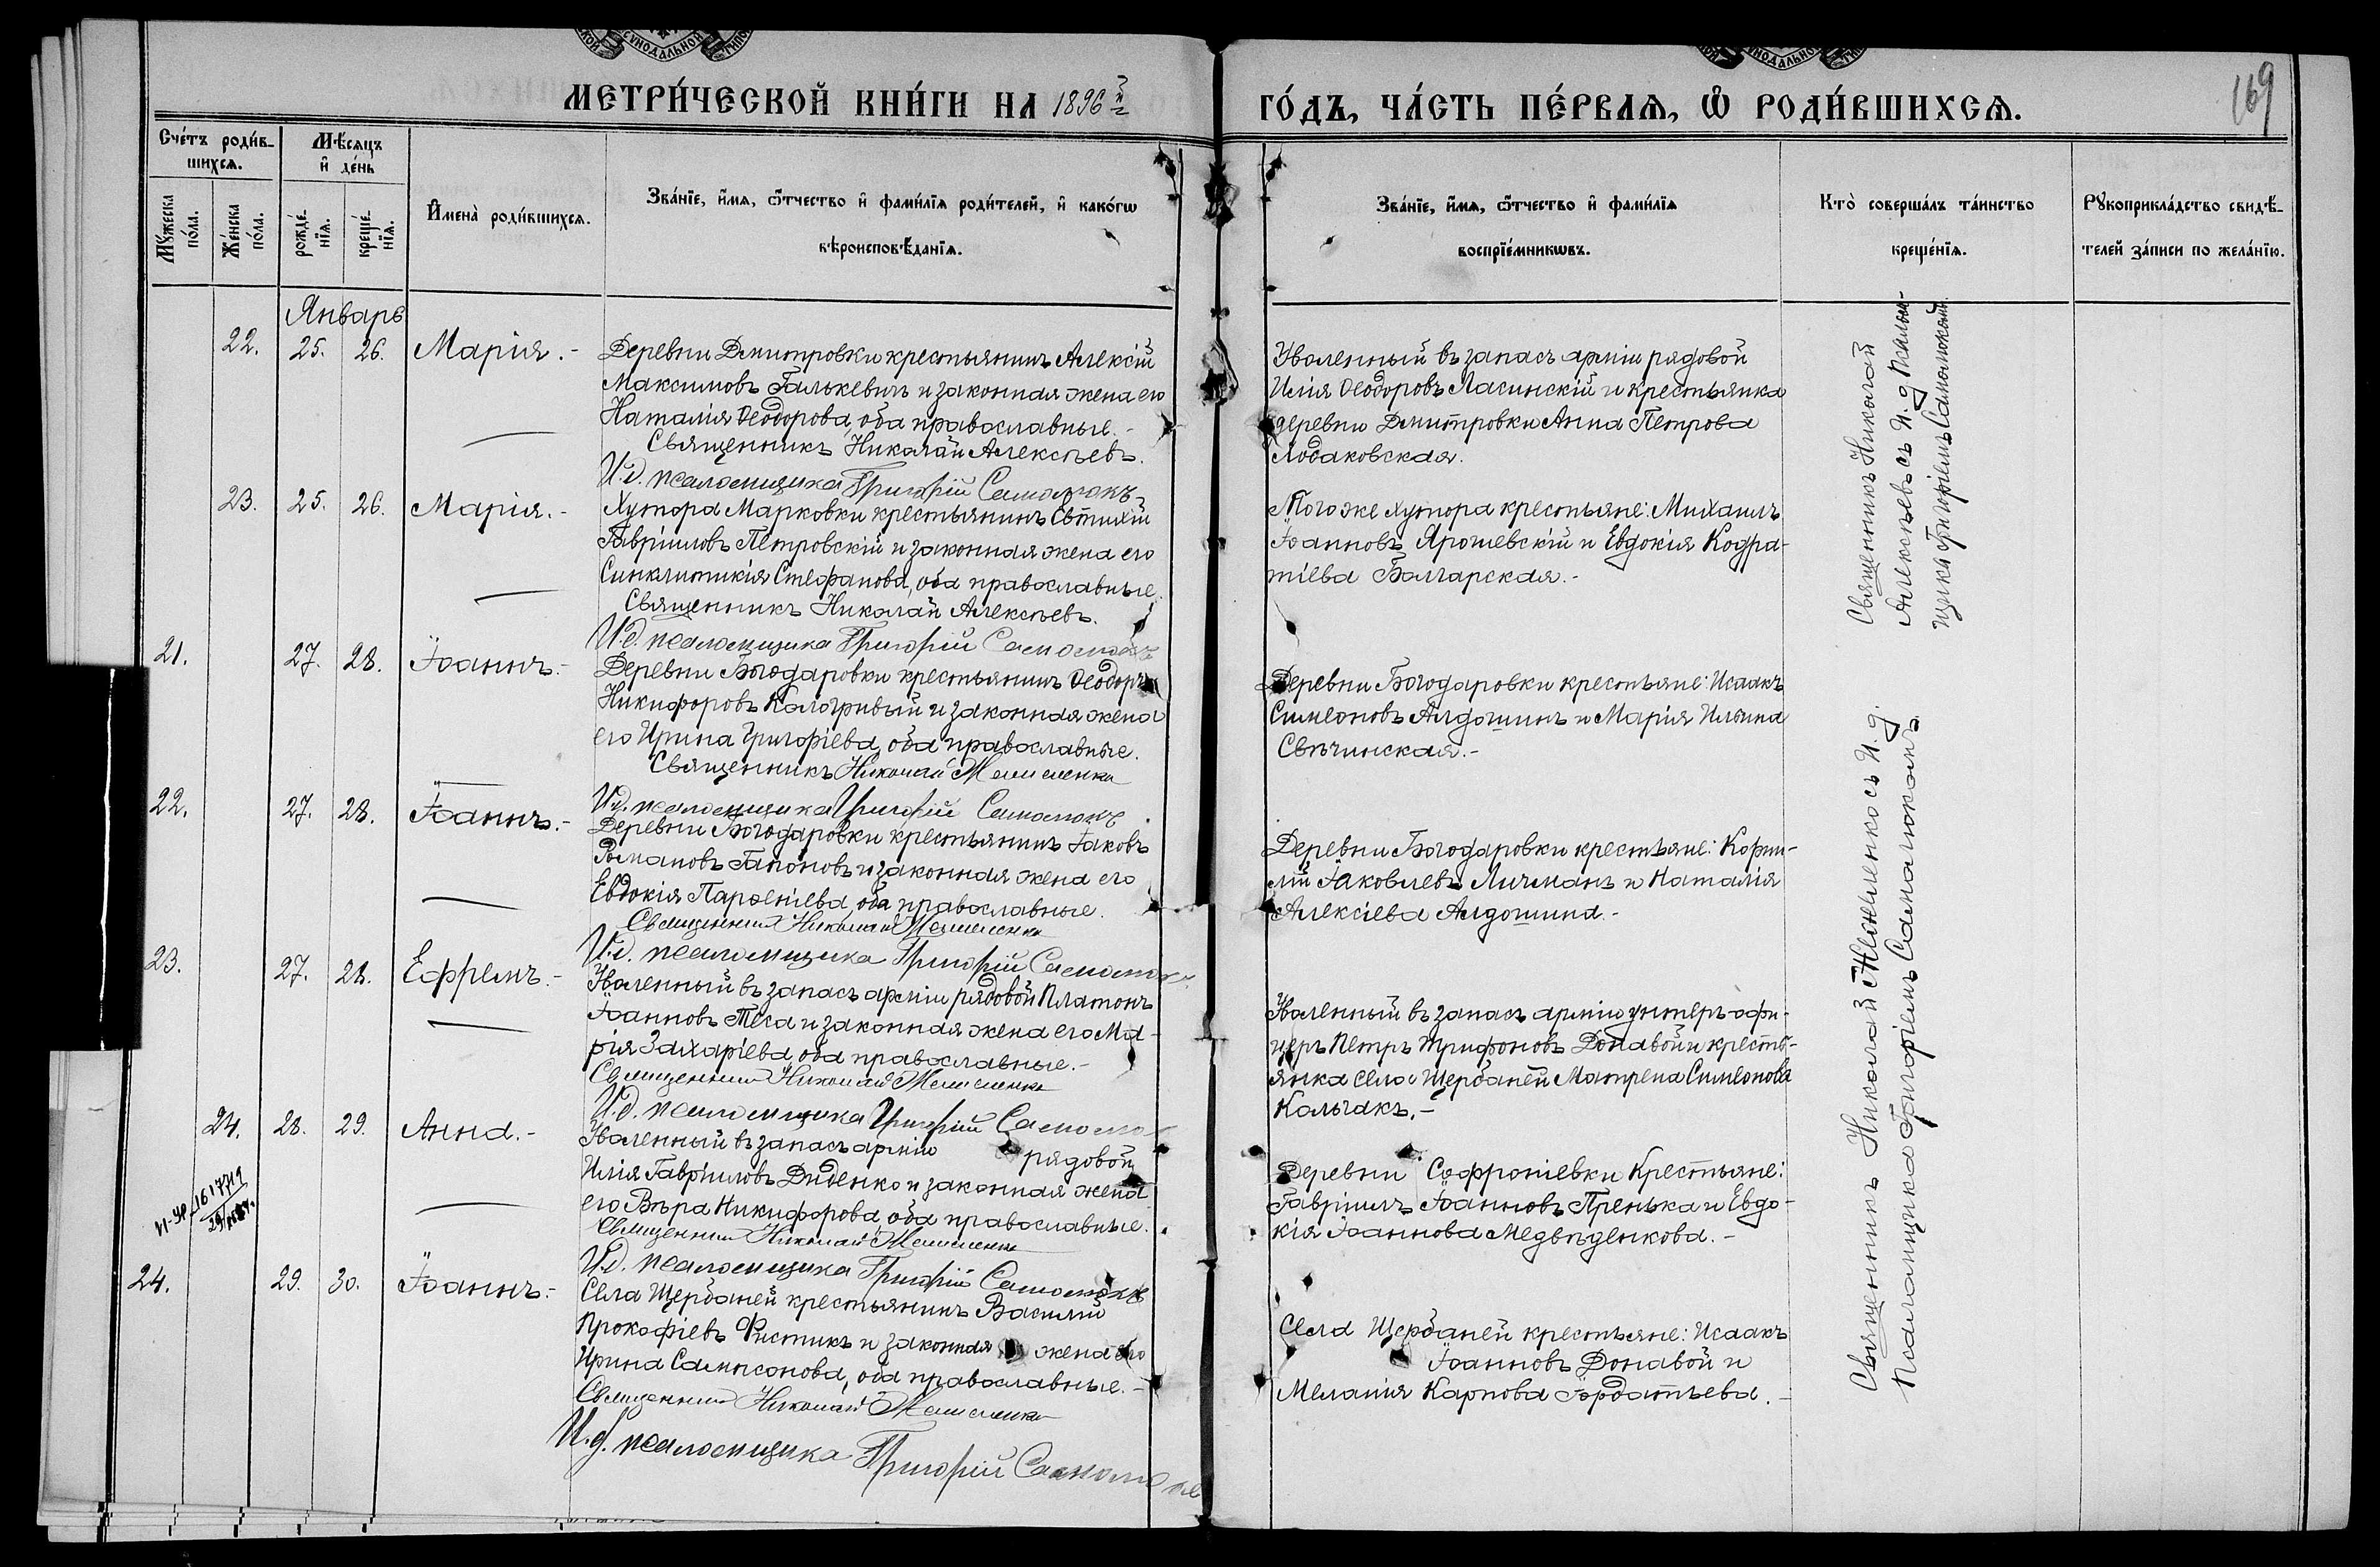 МЕТРИ́ЧЕСКОЙ КНИ́ГИ НА 1896й
ГО́ДЪ, ЧА́СТЬ ПЕ́РВАѦ, Ѡ҆ РОДИ́ВШИХСѦ.
169
Сче́тъ роди́в-
шихсѧ.
Мѣ́сѧцъ
и҆ де́нь
Мꙋ́жеска
по́ла.
Же́нска
по́ла.
рожде́-
нїѧ.
креще́-
нїѧ.
И҆мена̀ роди́вшихсѧ.
Зва́нїе, и҆́мѧ, ѻ҆́тчество и҆ фами́лїѧ роди́телей, и҆ како́гѡ
вѣроисповѣ́данїѧ.
Зва́нїе, и҆́мѧ, ѻ҆́тчество и҆ фами́лїѧ
воспрїе́мникѡвъ.
Кто̀ соверша́лъ та́инство
креще́нїѧ.
Рꙋкоприкла́дство свидѣ́-
телей за́писи по жела́нїю.
Январь
22. 25. 26. Марія.-
Деревни Дмитровки крестьянинъ Алексій
Максимовъ Галькевичъ и законная жена его
Наталія Ѳеодорова, оба православные.-
Священникъ Николай Алексѣевъ.
И.д. псаломщика Григорій Самолюкъ
Уволенный въ запасъ арміи рядовой
Илія Ѳеодоровъ Ласинскій и крестьянка
деревни Дмитровки Анна Петрова
Лобаковская.
23. 25. 26. Марія.-
Хутора Марковки крестьянинъ Евтихій
Гавріиловъ Петровскій и законная жена его
Синклитикія Стефанова, оба православные
Священникъ Николай Алексѣевъ.
И.д. псаломщика Григорій Самолюкъ
Того же хутора крестьяне: Михаилъ
Іоанновъ Ярошевскій и Евдокія Кодра-
тіева Болгарская.-
21. 27. 28. Іоаннъ.-
Деревни Богодаровки крестьянинъ Ѳеодоръ
Никифоровъ Кологривый и законная жена
его Ирина Григоріева, оба православные.
Священникъ Николай
И.д. псаломщика Григорій Самолюкъ
Деревни Богодаровки крестьяне: Исаакъ
Симеоновъ Алдошинъ и Марія Ильина
Свѣчинская.-
22. 27. 28. Іоаннъ.-
Деревни Богодаровки крестьянинъ Іаковъ
Романовъ Гапоновъ и законная жена его
Евдокія Парѳеніева, оба православные.
Священникъ Николай
И.д. псаломщика Григорій Самолюкъ
Деревни Богодаровки крестьяне: Корни-
лій Іаковлевъ Личманъ и Наталія
Алексіева Алдошина.-
23. 27. 28. Ефремъ.-
Уволенный въ запасъ арміи рядовой Платонъ
Іоанновъ Теса и законная жена его Ма-
рія Захаріева, оба православные.-
Священникъ Николай
И.д. псаломщика Григорій Самолюкъ
Уволенный въ запасъ арміи унтеръ-офи-
церъ Петръ Трифоновъ Донавой и кресть-
янка села Щербаней Матрена Симеонова
Колчакъ.-
24. 28. 29. Анна.-
Уволенный въ запасъ арміи рядовой
Илія Гавріиловъ Диденко и законная жена
его Вѣра Никифорова, оба православные.
Священникъ Николай
И.д. псаломщика Григорій Самолюкъ
Деревни Софроніевки Крестьяне:
Гавріилъ Іоанновъ Пренька и Евдо-
кія Іоаннова Медвѣденкова.-
24. 29. 30. Іоаннъ.-
Села Щербаней крестьянинъ Василій
Прокофіевъ Фистикъ и законная жена его
Ирина Сампсонова, оба православные.-
Священникъ Николай
И.д. псаломщика Григорій Самолюкъ
Села Щербаней крестьяне: Исаакъ
Іоанновъ Донавой и
Меланія Карпова Бордатьева.-
Священникъ Николай
Алексѣевъ съ И.д. Псалом-
щика Григоріемъ Самолюкомъ
Священникъ Николай съ И.д.
Псаломщика Григоріемъ Самолюкомъ